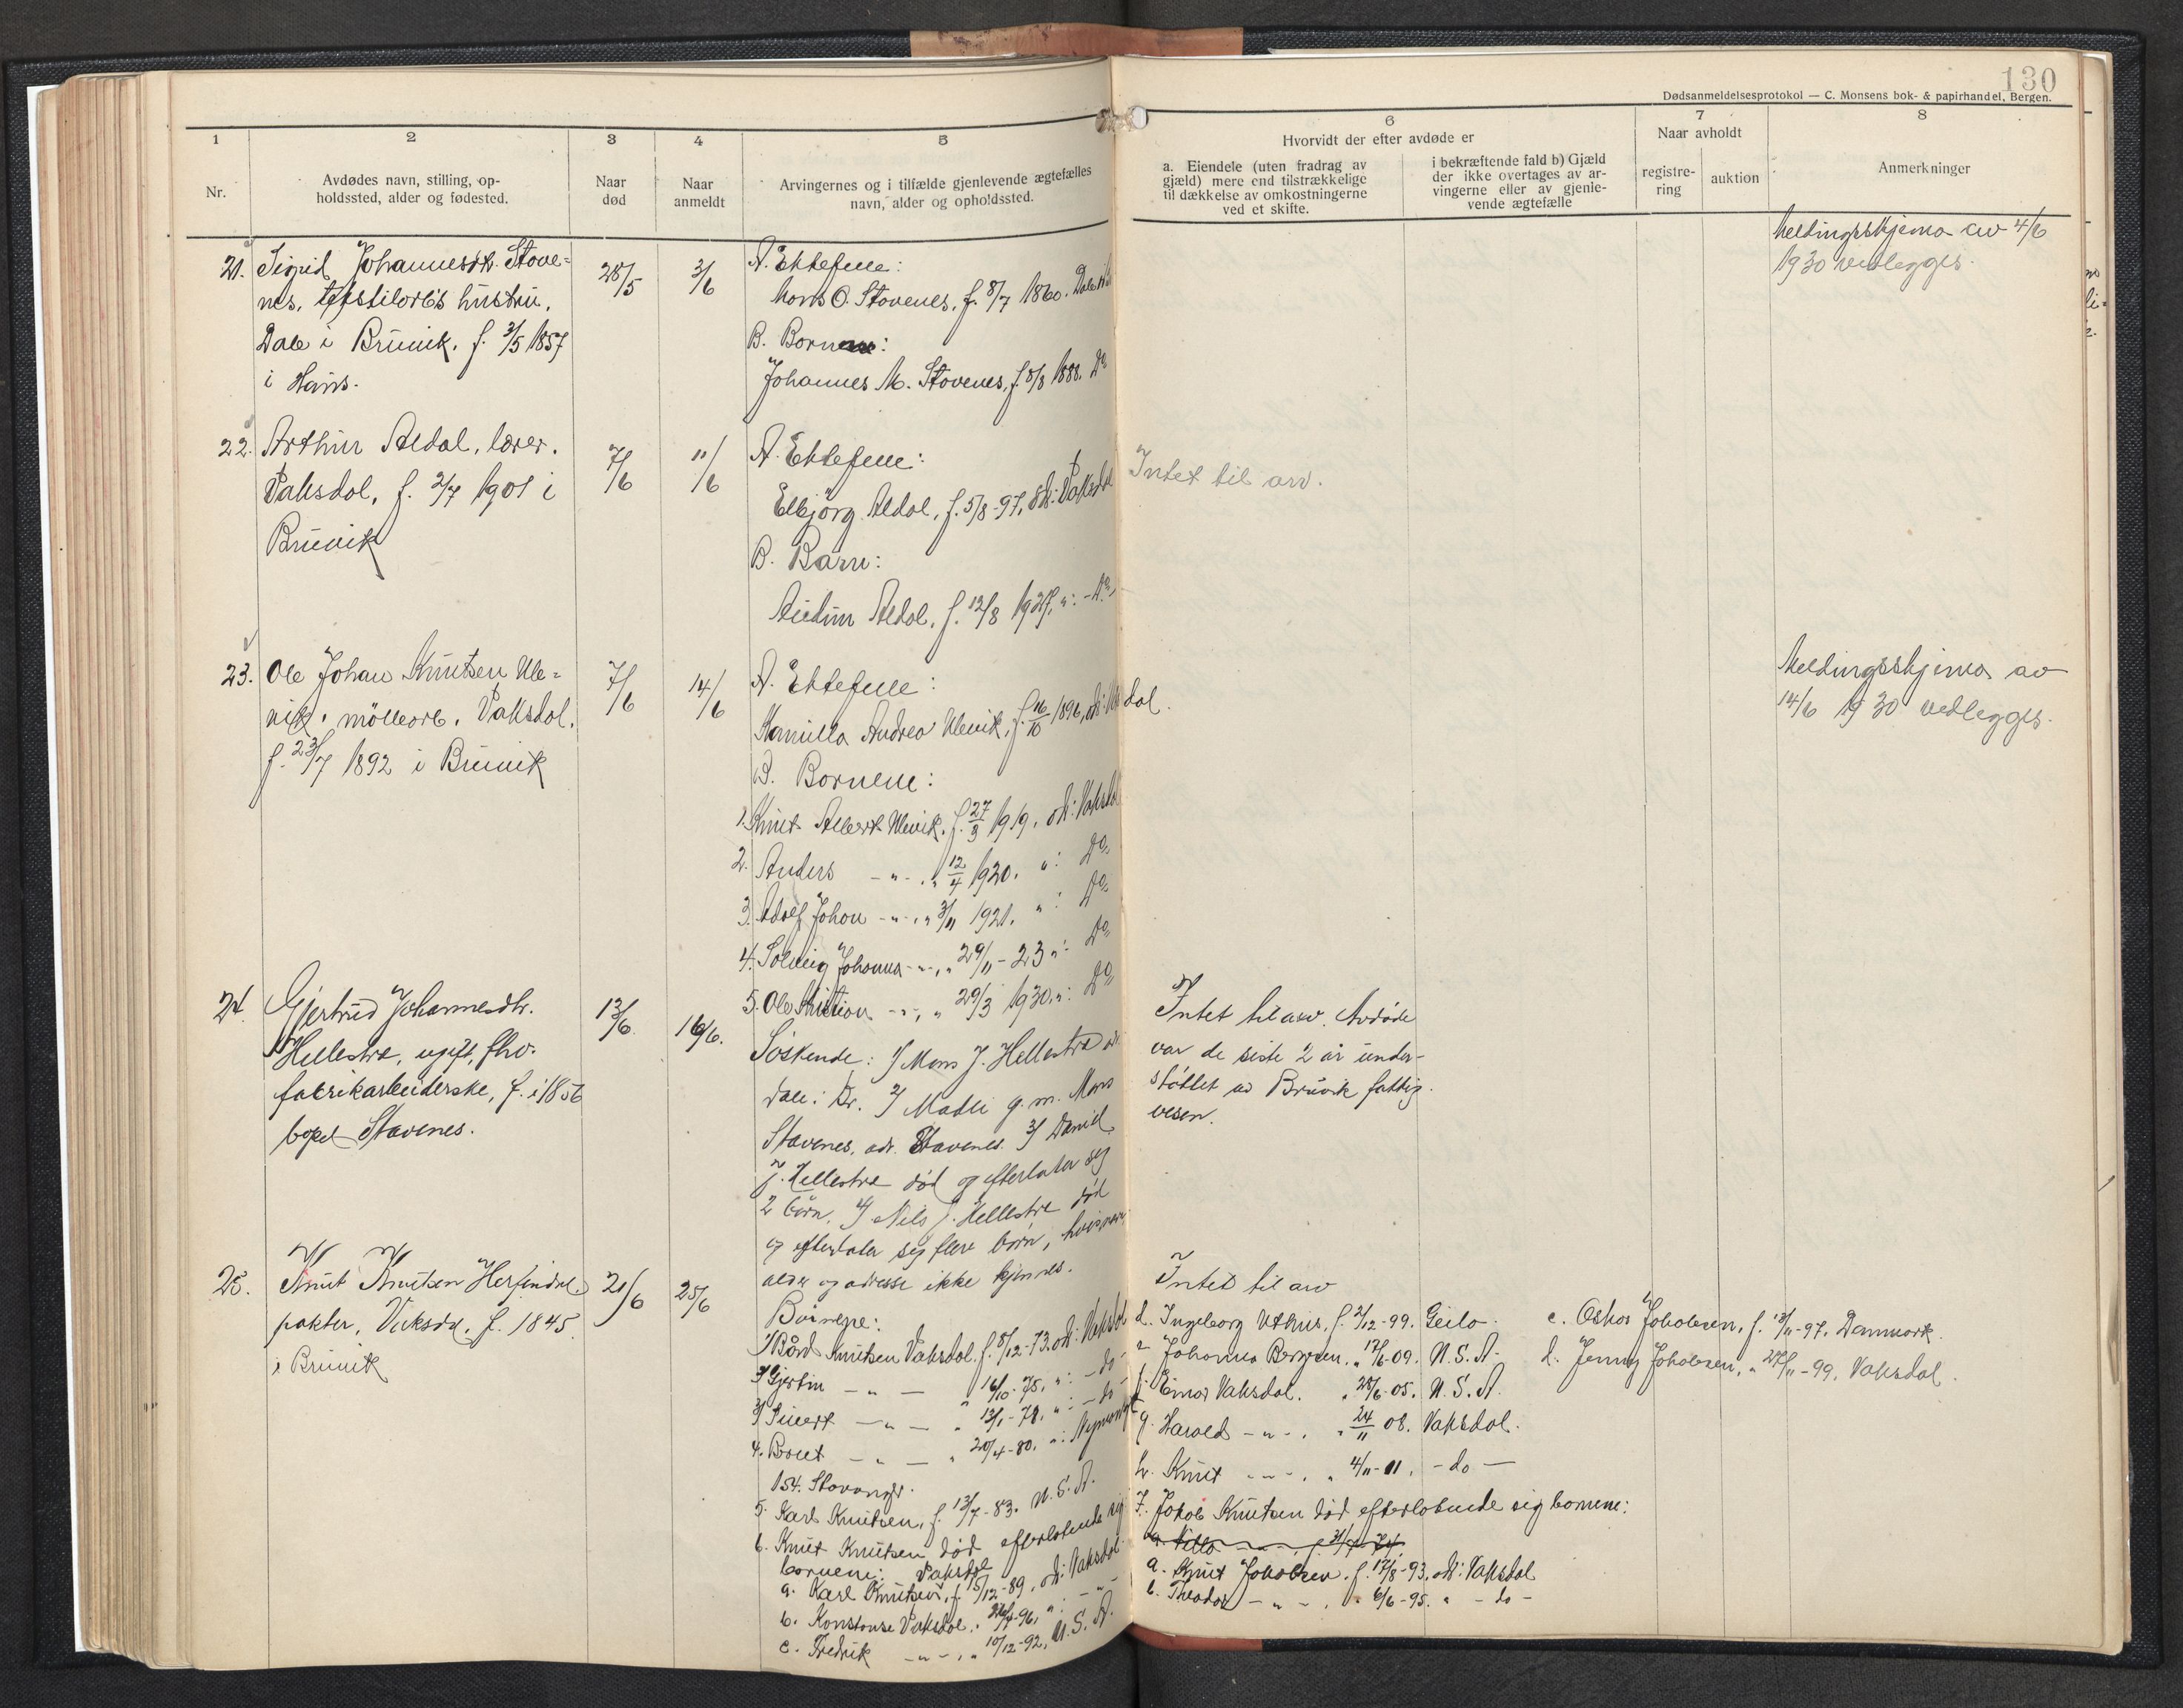 130
Dødsanmeldelsesprotokol — C. Monsens bok- & papirhandel, Bergen.
1
2
3
4
5
6
7
8
Nr.
Avdødes navn, stilling, op-
holdssted, alder og fødested.
Naar
død
Naar
anmeldt
Arvingernes og i tilfælde gjenlevende ægtefælles
navn, alder og opholdssted.
Hvorvidt der efter avdøde er
a. Eiendele (uten fradrag av
gjæld) mere end tilstrækkelige
til dækkelse av omkostningerne
ved et skifte.
i bekræftende fald b) Gjæld
der ikke overtages av ar-
vingerne eller av gjenle-
vende ægtefælle
Naar avholdt
registre-
ring
auktion
Anmerkninger
21. Sigrid Johannesdtr. Stove-
nes, tekstilarb's hustru,
Dale i Bruvik. f. 3/5 1857
i Haus.
28/5
3/6
A. Ektefelle:
Mons O. Stovenes, f. 8/7 1860. Dale
B. Born:
Johannes M. Stovenes, f. 8/8 1888. Do
Meldingsskjema av 4/6
1930 vedlegges.
22. Arthur Aldal, lærer.
Vaksdal, f. 2/7 1901 i
Bruvik
7/6
11/6
A. Ektefelle:
Elbjörg Aldal, f. 5/8-97, adr: Vaksdal
B. Barn:
Audun Aldal, f. 12/8 1927, ": - Do
Intet til arv.
23. Ole Johan Knutsen Ule-
vik, möllearb. Vaksdal.
f. 23/7 1892 i Bruvik
7/6
14/6
A. Ektefelle:
Kamilla Andrea Ulevik, f. 16/10 1896, adr: Vaksdal.
B. Bornene:
1. Knut Albert Ulevik, f. 27/3 1919, adr: Vaksdal
2. Anders -"- , " 12/4 1920. ": Do
3. Adolf Johan -"- , " 3/11 1921. ": Do
4. Solveig Johanna -"- , " 29/11-23 ": Do
5. Ole Kristian -"- , " 29/3 1930. ": Do
Meldingsskjema av
14/6 1930 vedlegges.
24. Gjertrud Johannesdtr.
Hellestræ, ugift, fhv.
fabrikarbeiderske, f. i 1856
bopel Stavenes.
13/6
16/6.
Søskende: 1/ Mons J. Hellestræ adr.
Dale i Br. 2/ Madli g. m. Mons
Stavenes, adr. Stavenes. 3/ Daniel
J. Hellestræ død og efterlater seg
2 børn. 4/ Nils J. Hellestræ død
og efterlater seg flere børn, hvis navn
alder og adresse ikke kjennes.
Intet til arv. Avdøde
var de siste 2 år under-
støttet av Bruvik fattig-
vesen.
25. Knut Knutsen Herfindal
pakter, Vaksdal, f. 1845
i Bruvik
21/6
25/6
Börnene:
1/ Bård Knutsen Vaksdal, f. 8/12-73. adr: Vaksdal
2/ Gjertin - " - " 16/10-75, ": - do -
3/ Sivert - " - " 13/1-78, ": - do -
4. Berut - " - " 20/4-80. ":
154. Stavanger.
5. Karl Knutsen, f. 13/7-83. U.S.A.
6. Knut Knutsen død efterlatende sig
bornene:
a. Karl Knutsen Vaksdal, f. 5/12-89, adr: Vaksdal.
b. Konstanse Vaksdal, " 26/4-96, ": - " -
c. Fredrik -"- , " 10/12-92, U.S.A.
Intet til arv
d. Ingeborg Uthus, f. 2/12-99. Geilo.
e. Johanna Bergsen, " 17/6-09. U.S.A.
f. Einar Vaksdal. " 28/6-05. U.S.A.
g. Harald -"- . " 24/11 08. Vaksdal.
h. Knut -"- . " 4/11-11. - do -
7. Jakob Knutsen död efterlatende sig bornene:
a. Knut Jakobsen, f. 17/8-93, adr: Vaksdal
b. Theodor - " - , " 6/6-95. " - do -
c. Oskar Jakobsen, f. 13/11-97. Danmark.
d. Jenny Jakobsen, " 27/11-99. Vaksdal.